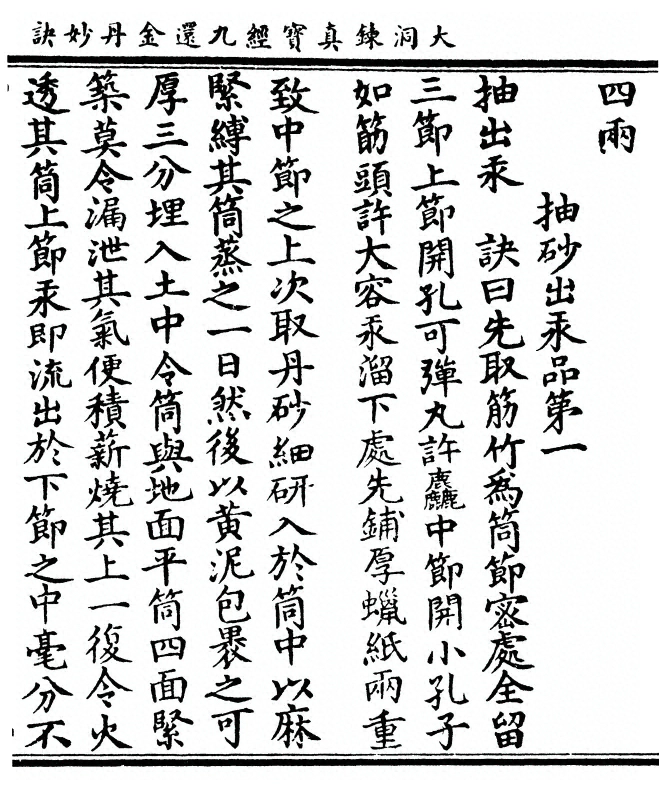 大洞鍊真寶經九還金丹妙訣
四兩
抽砂出汞品第一
抽出汞　訣曰先取筋竹為筒節密處全留
三節上節開孔可彈丸許麤中節開小孔子
如筋頭許大容汞溜下處先鋪厚蠟紙兩重
致中節之上次取丹砂細研入於筒中以麻
緊縛其筒蒸之一日然後以黃泥包裹之可
厚三分埋入土中令筒與地面平筒四面緊
築莫令漏泄其氣便積薪燒其上一復令火
透其筒上節汞即流出於下節之中毫分不